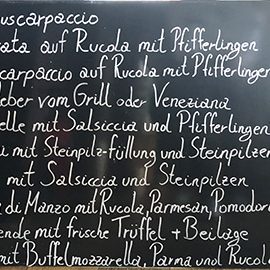 uscarpaccio
rata auf Rucola mit Pfifferlingen
carpaccio auf Rucola mit Pfifferlingen
eber vom Grill oder Veneziana
elle mit Salsiccia und Pfifferlingen
i mit Steinpilz-füllung und Steinpilzen
mit Salsiccia und Steinpilzen
e di Manzo mit Rucola, Parmesan, Pomodori
ende mit frische Trüffel + Beilage
mit Buffelmozzarella, Parma und Rucola